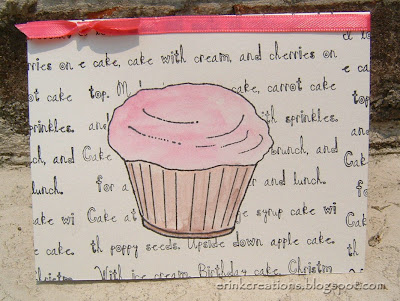 rries on e cake, cake with cream, and cherries on e
cake top. M cake, carrot cake top.
and with sprinkles. and
h, and Cake brunch, and Cak
lunch. for a er and lunch. f
cake wi Cake at ge syrup cake wi
cake. th poppy seeds. Upside down apple cake. th
With ice cream. Birthday cake. Christm
erinkcreations.blogspot.com